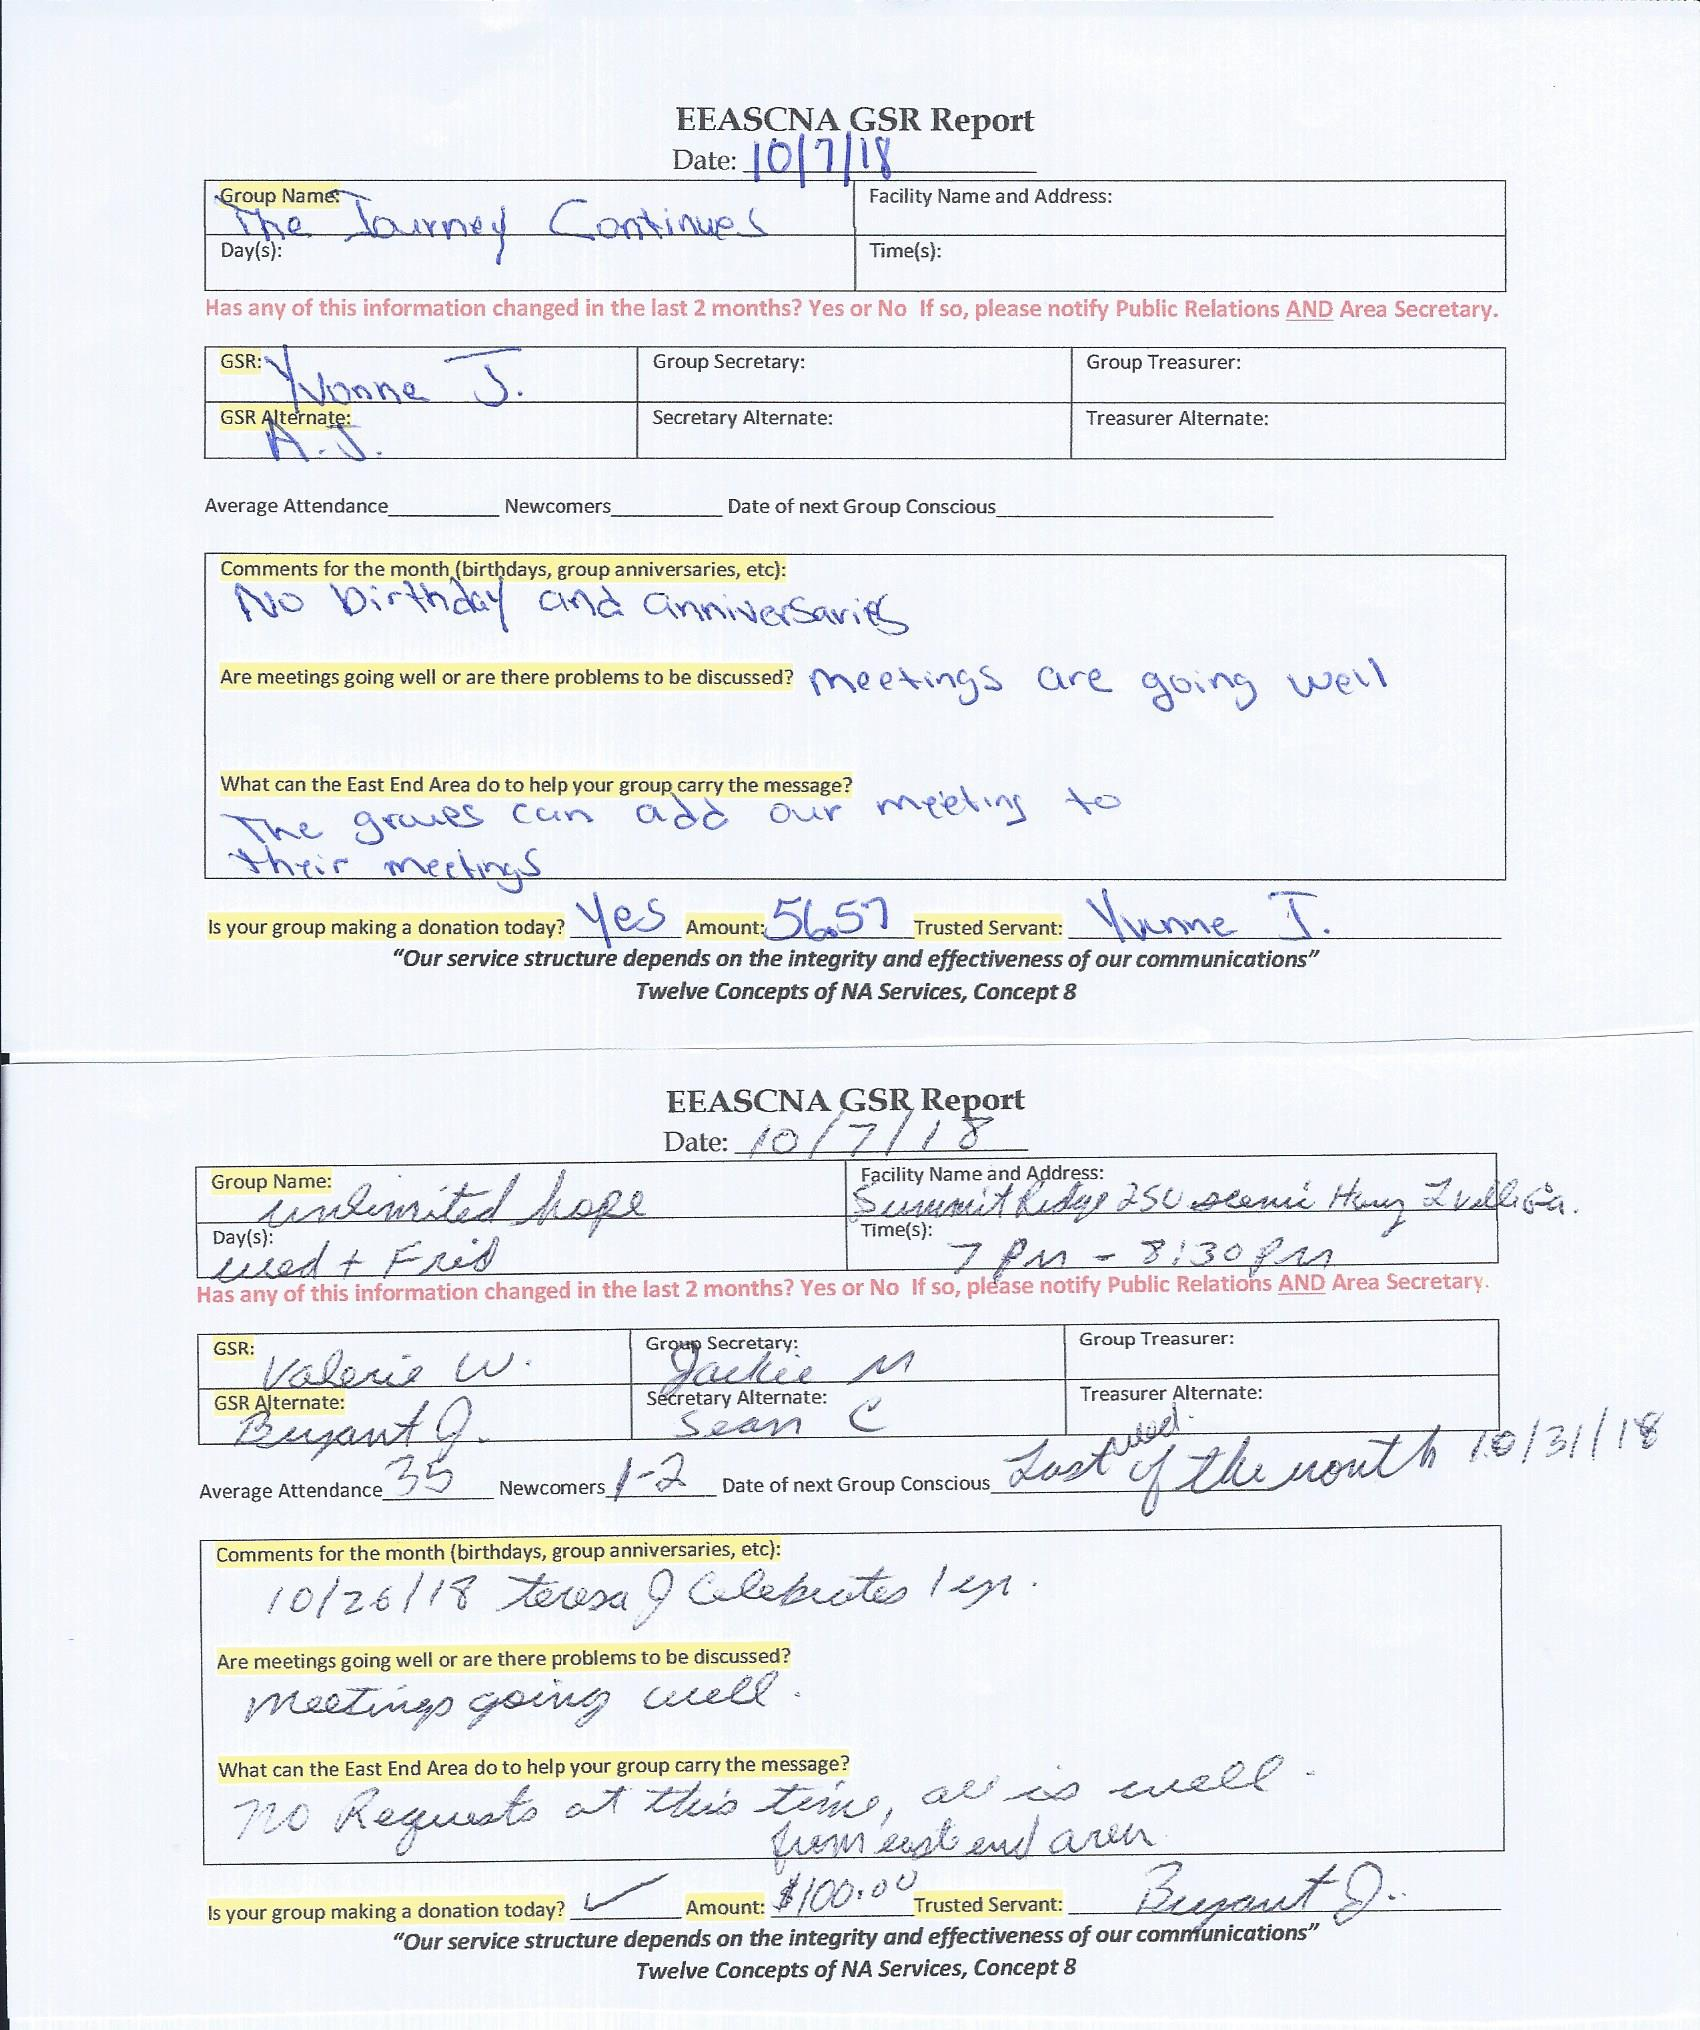 EEASCNA GSR Report
Date: 10/7/18
Group Name: The Journey Continues
Facility Name and Address:
Day(s):
Time(s):
Has any of this information changed in the last 2 months? Yes or No If so, please notify Public Relations AND Area Secretary.
GSR: Yvonne J.
Group Secretary:
Group Treasurer:
GSR Alternate: A.J.
Secretary Alternate:
Treasurer Alternate:
Average Attendance Newcomers Date of next Group Conscious
Comments for the month (birthdays, group anniversaries, etc):
No birthday and anniversaries
Are meetings going well or are there problems to be discussed? meetings are going well
What can the East End Area do to help your group carry the message?
The can add our meeting to
their meetings
Is your group making a donation today? Yes Amount: 56.57 Trusted Servant: Yvonne J.
“Our service structure depends on the integrity and effectiveness of our communications”
Twelve Concepts of NA Services, Concept 8
EEASCNA GSR Report
Date: 10/7/18
Group Name: unlimited hope
Facility Name and Address:
Summit Ridge 250 scenic Hwy Lville Ga.
Day(s): wed + Frid
Time(s): 7 pm - 8:30 pm
Has any of this information changed in the last 2 months? Yes or No If so, please notify Public Relations AND Area Secretary.
GSR: Valerie W.
Group Secretary: Jackie M
Group Treasurer:
GSR Alternate: Bryant J.
Secretary Alternate: Sean C
Treasurer Alternate:
Average Attendance 35 Newcomers 1-2 Date of next Group Conscious Last wed. of the month 10/31/18
Comments for the month (birthdays, group anniversaries, etc):
10/26/18 teresa J Celebrates 1 yr.
Are meetings going well or are there problems to be discussed?
Meetings going well.
What can the East End Area do to help your group carry the message?
No Requests at this time, all is well.
from east end area
Is your group making a donation today? ✓ Amount: $100.00 Trusted Servant: Bryant J.
“Our service structure depends on the integrity and effectiveness of our communications”
Twelve Concepts of NA Services, Concept 8